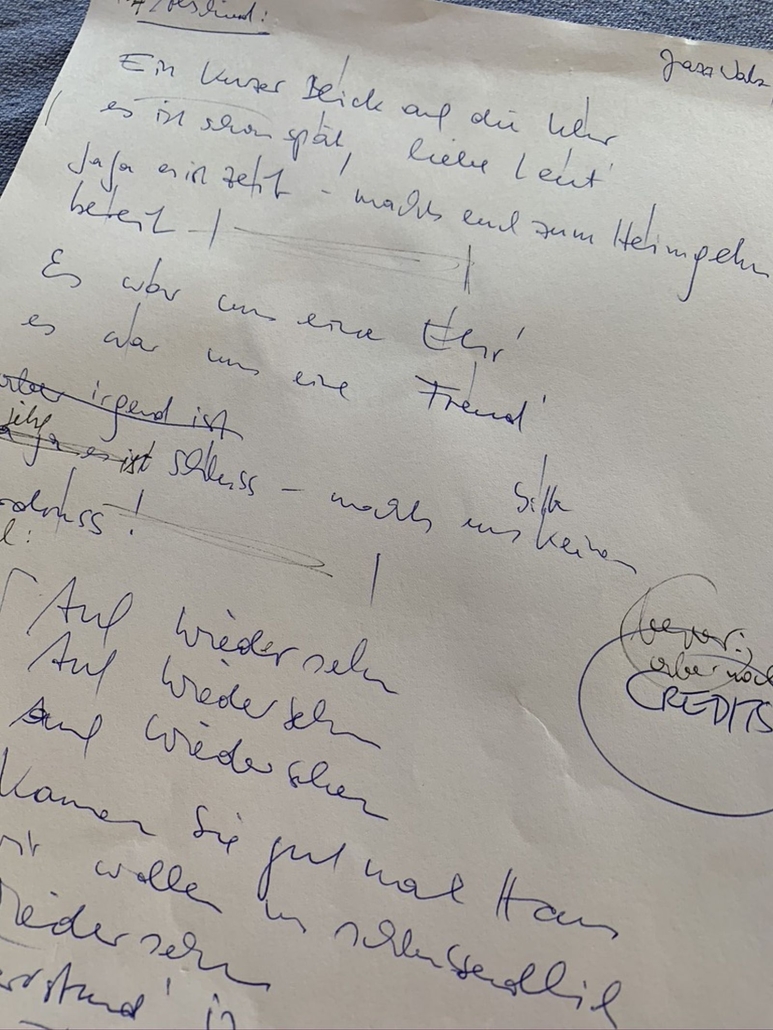 Jazz Walz
Ein kurzer Blick auf die Uhr
es ist schon spät, liebe Leut'
Jaja es ist Zeit - machts euch zum Heimgehn
bereit
Es war uns eine Ehr'
es war uns eine Freud'
aber irgend ist
jaja es ist Schluss - machts uns bitte keinen
Auf Wiedersehn
Auf Wiedersehn
Auf Wiedersehen
Kommen Sie gut nach Haus
wir wollen uns schlussendlich
Wiedersehn
bevor:
aber noch
CREDITS